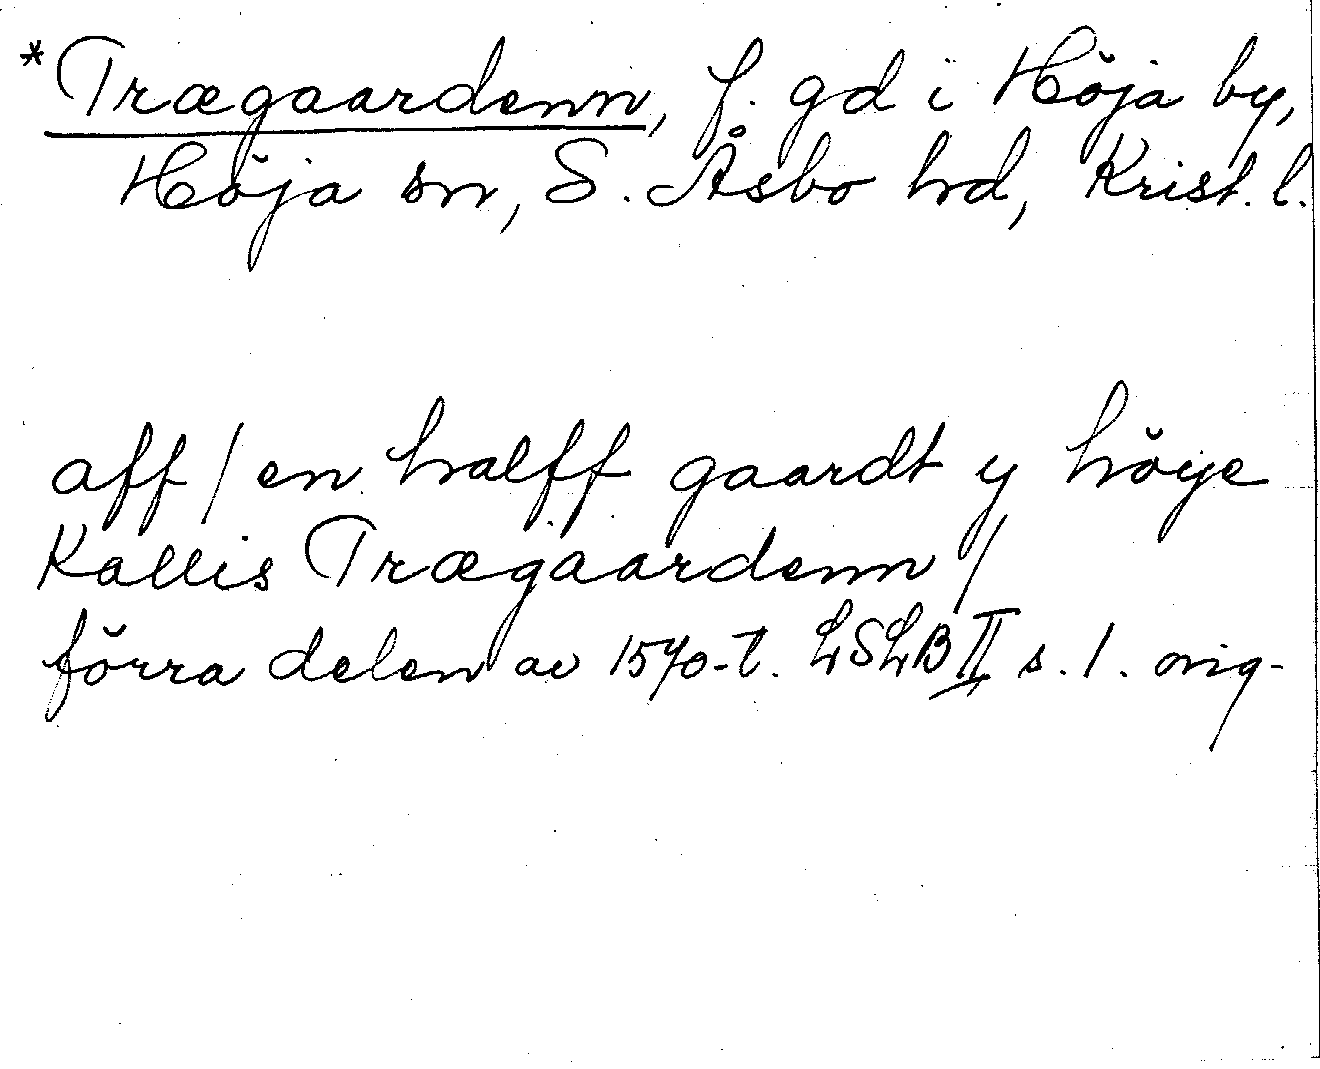 *Trægaardenn, f. gd i Höja by,
Höja sn, S. Åsbo hd, Krist. l.
aff / en halff gaardt y höye
Kallis Trægaardenn /
förra delen av 1570-t. LSLB II s. 1. orig-